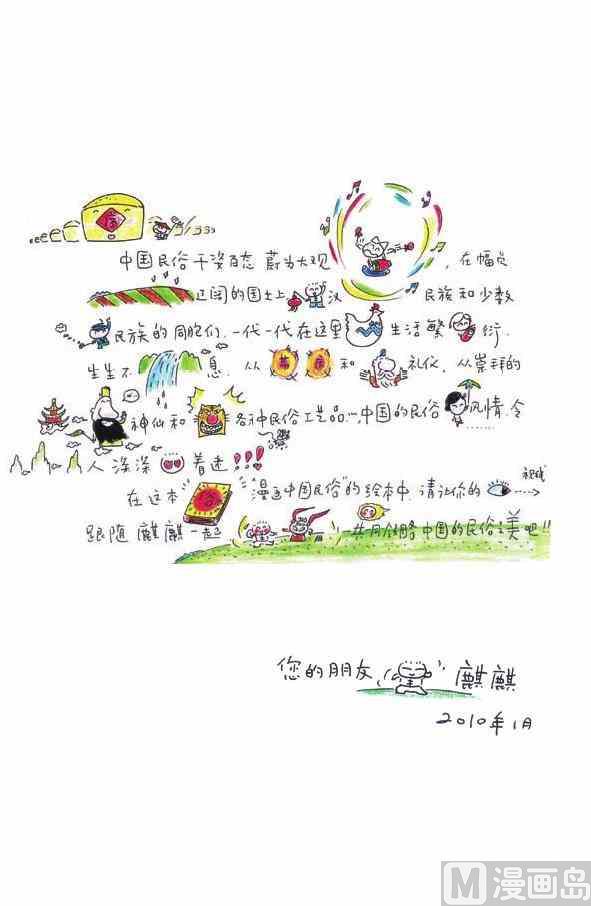 中国民俗千姿百态 蔚为大观 ，在幅员
辽阔的国土上 汉 民族和少数
民族的同胞们，一代一代在这里 生活繁 衍，
生生不 息，从 和 礼仪，从崇拜的
神仙和 各种民俗工艺品…，中国的民俗 风情，令
人深深 着迷!!!
在这本 俗 "漫画中国民俗"的绘本中，请让你的 视线
跟随 麒麒一起 一共同领略中国的民俗之美吧"
您的朋友 麒麒
2010年1月
M 漫画岛